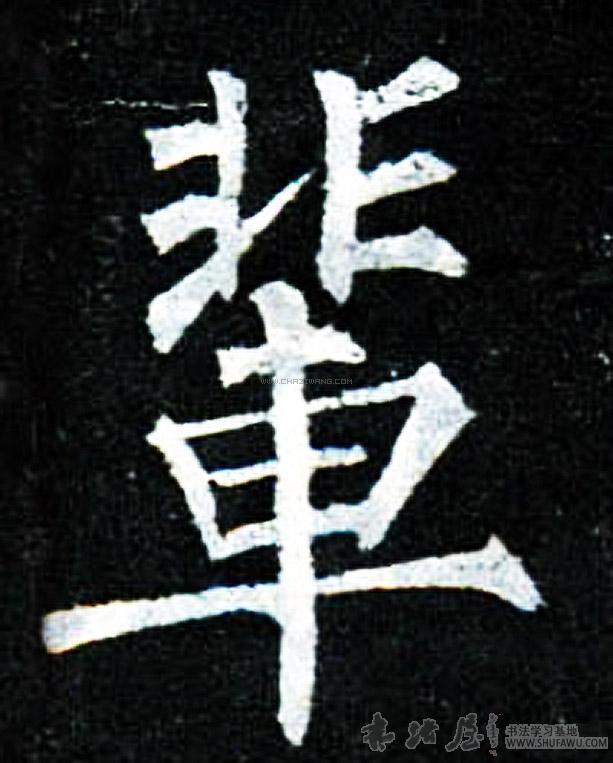 輩
WWW.CHAZIWANG.COM
书法屋
书法学习基地
WWW.SHUFAWU.COM